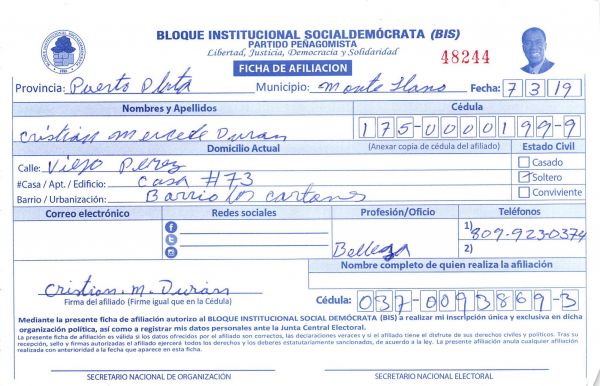 BLOQUE INSTITUCIONAL SOCIALDEMÓCRATA (BIS)
PARTIDO PEÑAGOMISTA
Libertad, Justicia, Democracia y Solidaridad
48244
FICHA DE AFILIACION
Provincia: Puerto Plata Municipio: Monte Llano Fecha: 7 3 19
Nombres y Apellidos Cédula
Cristian Mercede Duran 175-0000199-9
Domicilio Actual (Anexar copia de cédula del afiliado) Estado Civil
Calle: Viejo Perez Casado
#Casa / Apt. / Edificio: Casa #73 Soltero
Barrio / Urbanización: Barrio los cartones Conviviente
Correo electrónico Redes sociales Profesión/Oficio Teléfonos
1) 809-923-0374
Belleza 2)
Nombre completo de quien realiza la afiliación
Cristian. M. Durán
Firma del afiliado (Firme igual que en la Cédula) Cédula: 037-0093869-3
Mediante la presente ficha de afiliación autorizo al BLOQUE INSTITUCIONAL SOCIAL DEMÓCRATA (BIS) a realizar mi inscripción única y exclusiva en dicha
organización política, así como a registrar mis datos personales ante la Junta Central Electoral.
La presente ficha de afiliación es válida si los datos ofrecidos por el afiliado son correctos, las declaraciones veraces y si el afiliado tiene el disfrute de sus derechos civiles y políticos. Tras su
recepción, sello y firmas autorizadas el afiliado ejercerá todos los derechos y los deberes estatutariamente sancionados, de acuerdo a la ley. La presente afiliación anula cualquier afiliación
realizada con anterioridad a la fecha que aparece en esta ficha.
SECRETARIO NACIONAL DE ORGANIZACIÓN SECRETARIO NACIONAL ELECTORAL